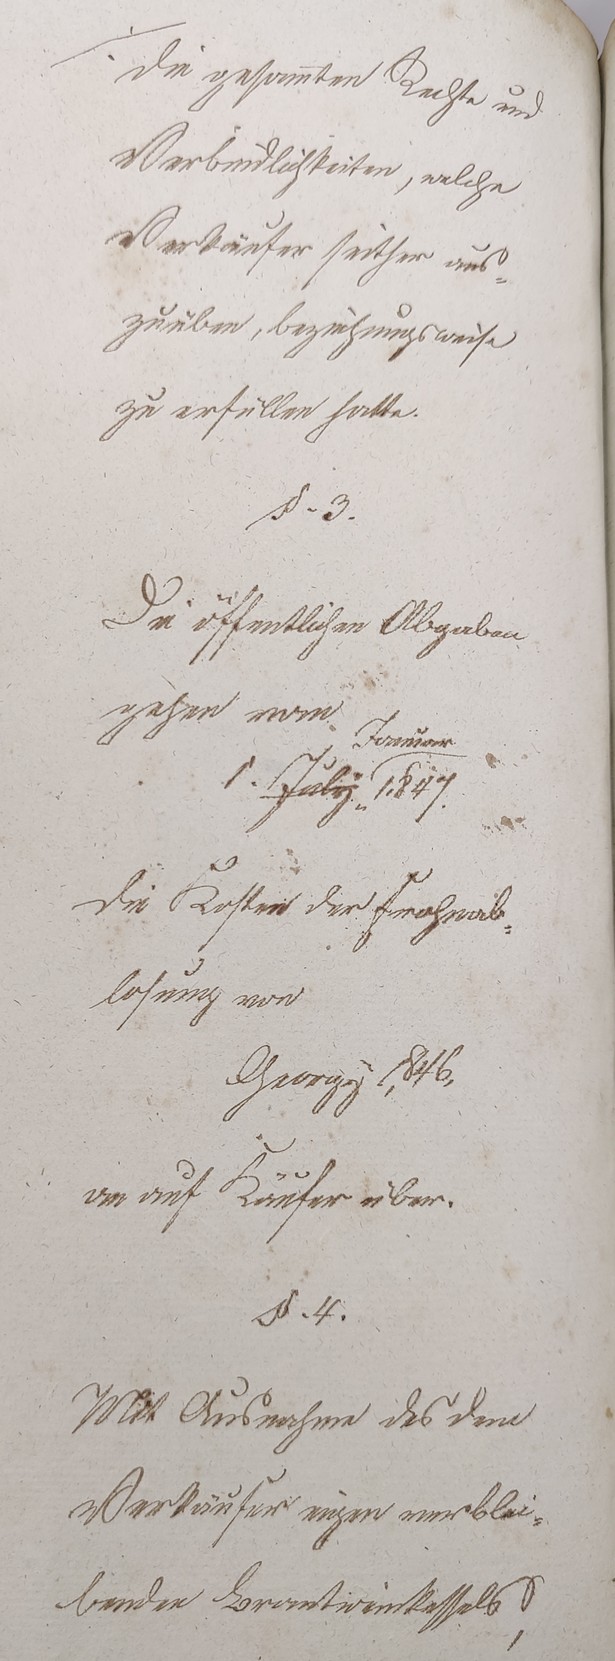 die gesamten Rechte und
Verbindlichkeiten, welche
Verkäufer seither aus=
zuüben, beziehungsweise
zu erfüllen hatte.
§. 3.
Die öffentlichen Abgaben
gehen vom
Januar
1. July 1847.
die Kosten der Frohnab=
losung von
Georgy 1846.
an auf Käufer über.
§. 4.
Mit Ausnahme des dem
Verkäufer eigen verblei=
benden Brantweinkessels,